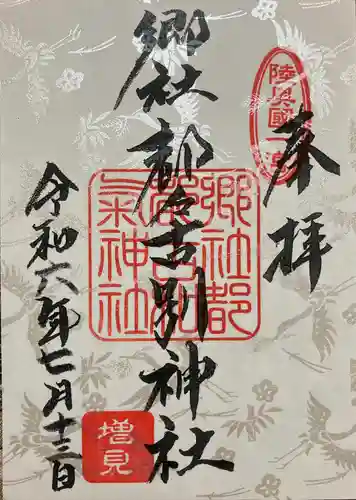 奉拝
陸奥國一宮
郷社都々古別神社
郷社都
古和
氣神社
令和六年七月十三日
増見